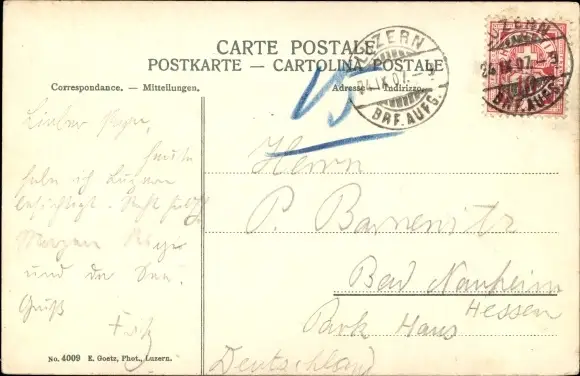 CARTE POSTALE
POSTKARTE — CARTOLINA POSTALE
Correspondance. — Mitteilungen.
Adresse — Indirizzo.
LUZERN
24.IX.07.–9
BRF.AUFG.
LUZERN
24.IX.07.–9
BRF.AUFG.
15
Lieber
heute
habe ich Luzern
besichtigt.
Morgen Rigi
und der See.
Gruß
Fritz
Herrn
P.
Bad Nauheim
Hessen
Park Haus
Deutschland
No. 4009 E. Goetz, Phot., Luzern.